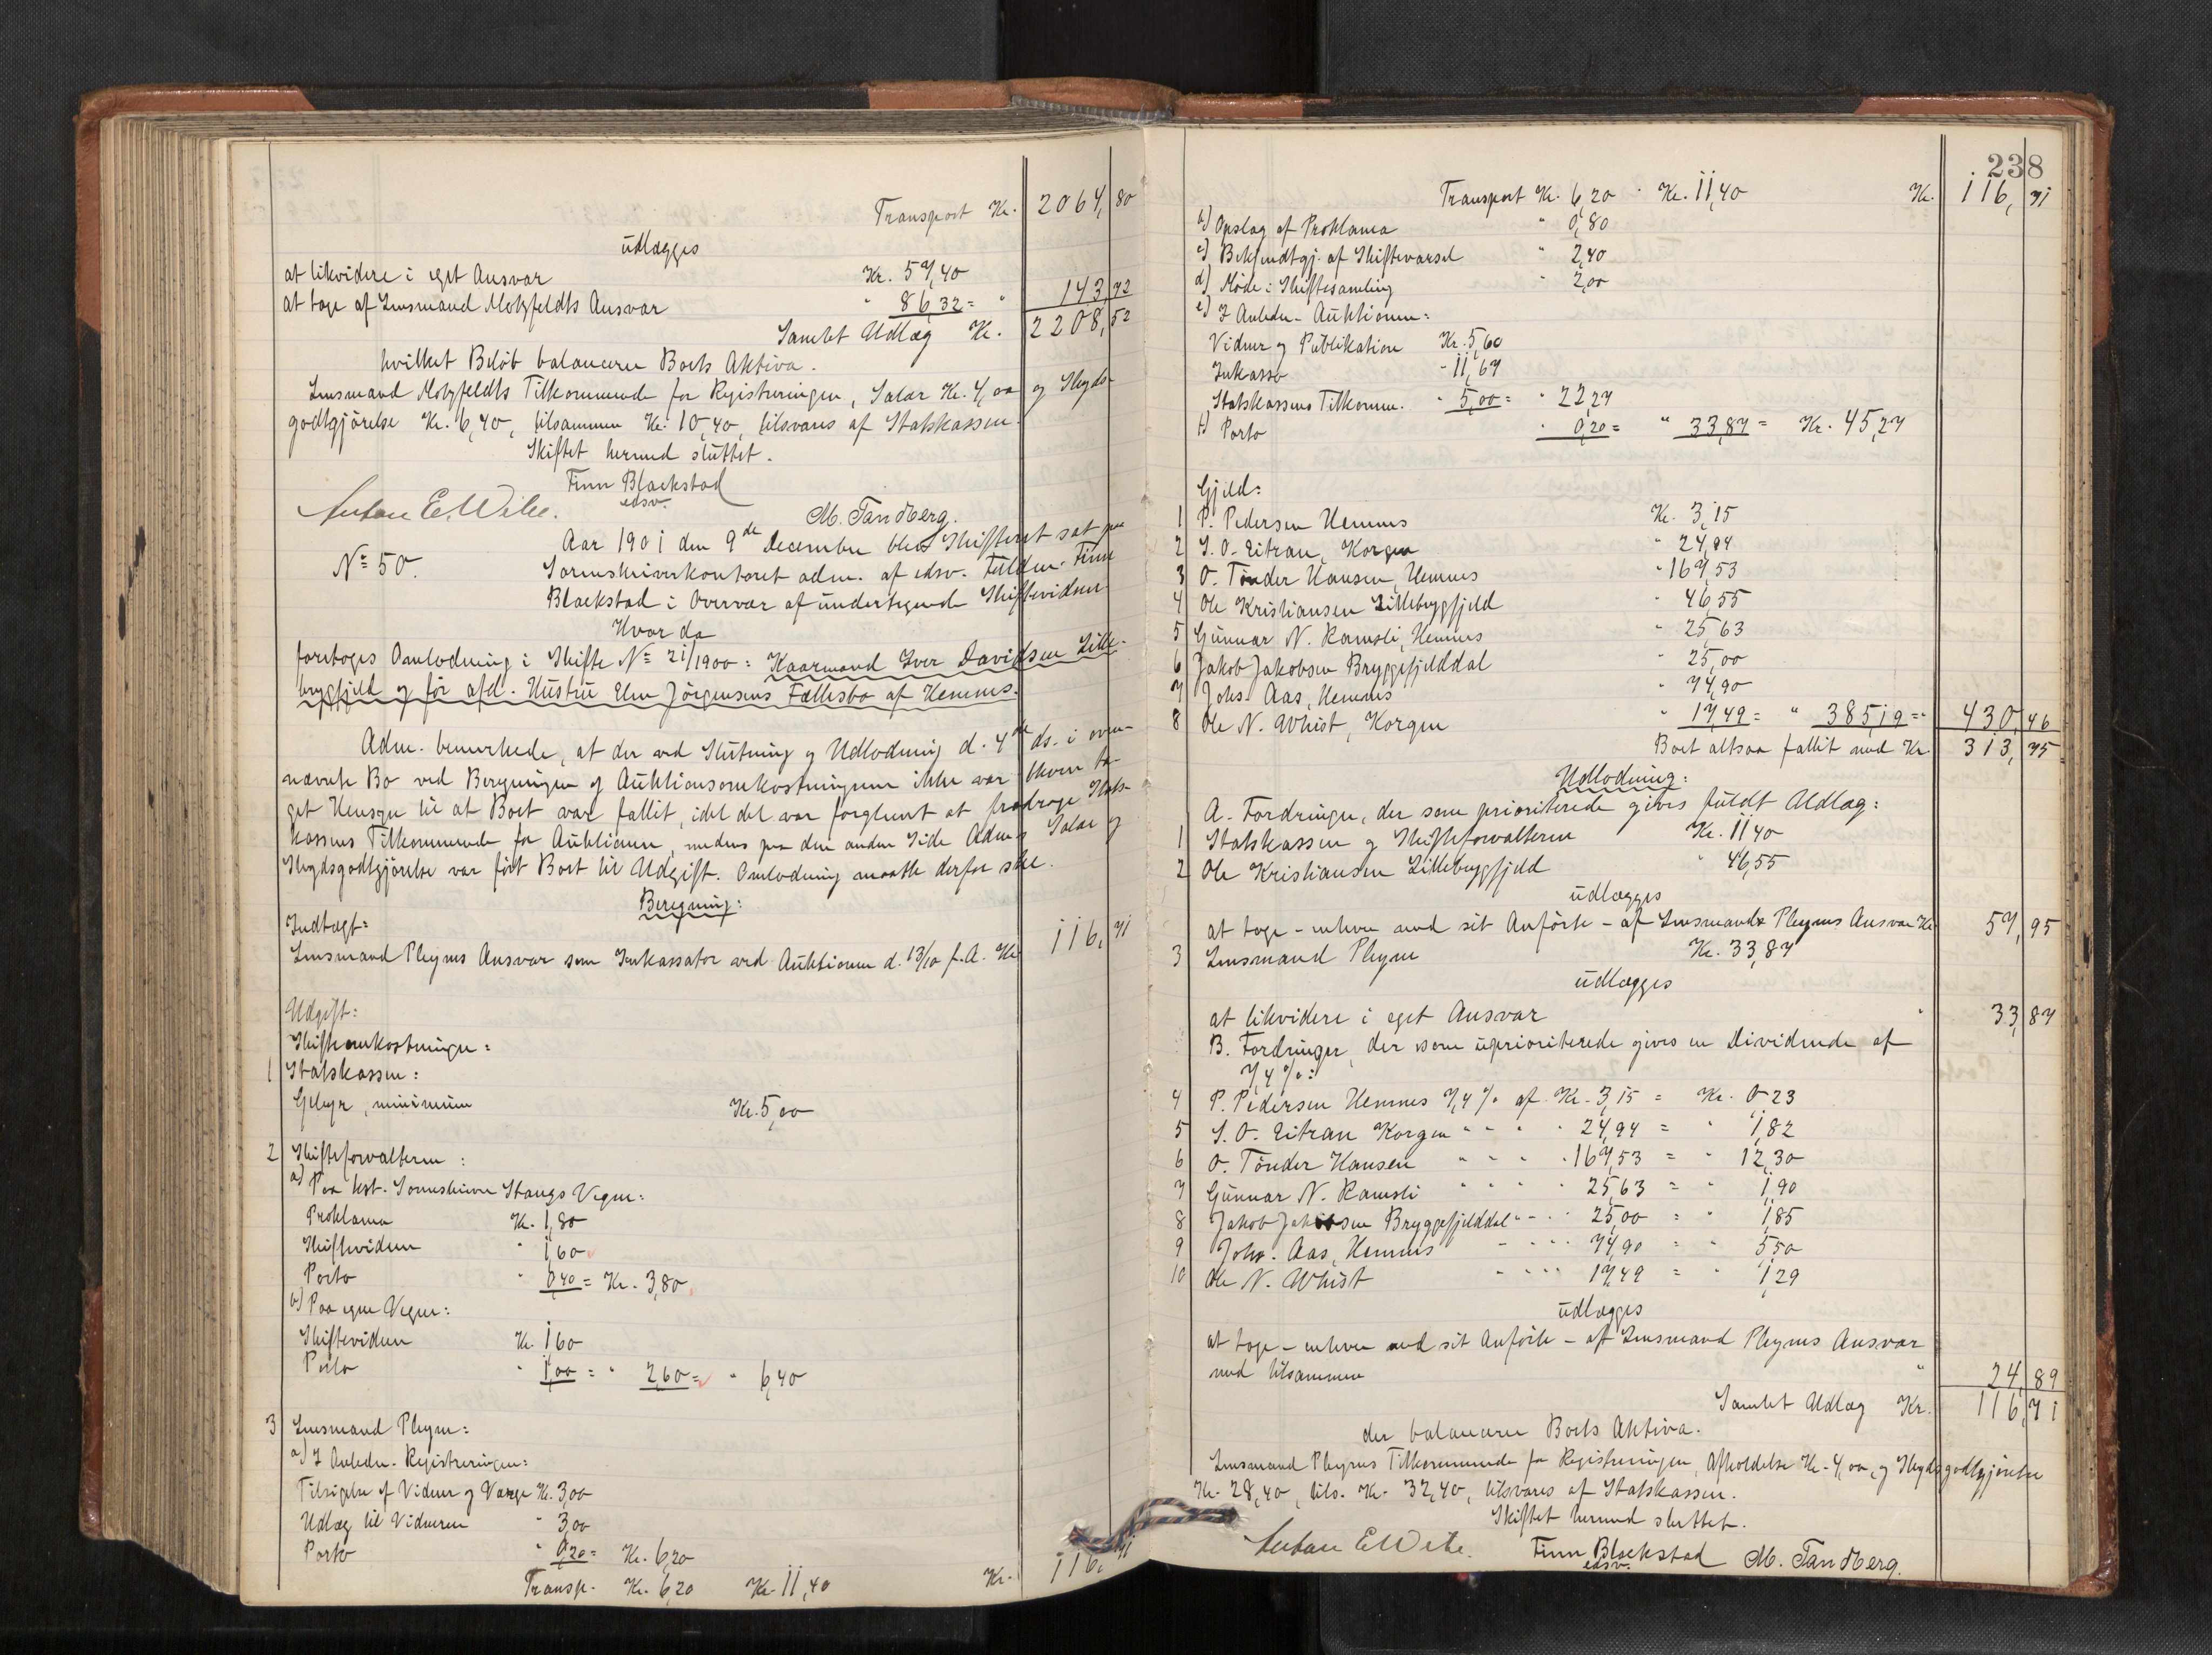 Transport Kr. 2064,80
udlægges
at likvidere i eget Ansvar Kr. 57,40
at tage af Lensmand Motzfeldts Ansvar " 86,32 = " 143,72
Samlet Udlæg Kr. 2208,52
hvilket Beløb balancerer Boets Aktiva.
Lensmand Motzfeldts Tilkommende for Registreringen, Salær Kr. 4,00 og Skyds-
godtgjörelse Kr. 6,40, tilsammen Kr. 10,40, tilsvares af Statskassen.
Skiftet hermed sluttet.
Finn Blackstad
edsv.
Anton E. Wibe. M. Tandberg.
No 50.
Aar 1901 den 9de December blev Skifteret sat paa
Sorenskriverkontoret adm. af edsv. Fuldm. Finn
Blackstad i Overvær af undertegnede Skiftevidner
Hvor da
foretoges Omlodning i Skifte No 21/1900: Kaarmand Iver Davidsen Lille-
brygfjeld og før afd. Hustru Elen Jörgensens Fællesbo af Hemnes.
Adm. bemerkede, at der ved Slutning og Udlodning d. 4de ds. i oven-
nævnte Bo ved Beregningen af Auktionsomkostningerne ikke var bleven ta-
get Hensyn til at Boet var fallit, idet det var forglemt at fradrage Stats-
kassens Tilkommende for Auktionen, medens paa den anden Side Adms Salær og
Skydsgodtgjörelse var fört Boet til Udgift. Omlodning maatte derfor ske.
Beregning:
Indtægt:
Lensmand Pleyms Ansvar som Inkassator ved Auktionen d. 13/10 f.A. Kr. 116,71
Udgift:
Skifteomkostninger:
1 Statskassen:
Gebyr, minimum Kr. 5,00
2 Skifteforvalteren:
a) Paa kst. Sorenskriver Stangs Vegne:
Proklama Kr. 1,80
Skiftevidner " 1,60
Porto " 0,40 = Kr. 3,80
b) Paa egne Vegne:
Skiftevidner Kr. 1,60
Porto " 1,00 = " 2,60 = " 6,40
3 Lensmand Pleym:
a) I Anledn. Registreringen:
Tilsigelse af Vidner og Værge Kr. 3,00
Udlæg til Vidnerne " 3,00
Porto " 0,20 = Kr. 6,20
Transp. Kr. 6,20 Kr. 11,40 Kr. 116,71
238
Transport Kr. 6,20 " Kr. 11,40 Kr. 116,71
b) Opslag af Proklama " 0,80
c) Bekjendtgj. af Skiftevarsel " 2,40
d) Möde i Skiftesamling 2,00
e) I Anledn. Auktionen:
Vidner og Publikation Kr. 5,60
Inkasso " 11,67
Statskassens Tilkomm. " 5,00 = " 22,27
f) Porto " 0,20 = " 33,87 = Kr. 45,27
Gjeld:
1 P. Pedersen Hemnes Kr. 3,15
2 S. O. Eitran, Korgen " 24,94
3 O. Tönder Hansen, Hemnes " 167,53
4 Ole Kristiansen Lillebrygfjeld " 46,55
5 Gunnar N. Ramsli, Hemnes " 25,63
6 Jakob Jakobsen Bryggefjelddal " 25,00
7 Johs. Aas, Hemnes " 74,90
8 Ole N. Whist, Korgen " 17,49 = " 385,19 = " 430,46
Boet altsaa fallit med Kr. 313,75
Udlodning:
A. Fordringer, der som prioriterede gives fuldt Udlæg:
1 Statskassen og Skifteforvalteren Kr. 11,40
2 Ole Kristiansen Lillebrygfjeld " 46,55
udlægges
at tage - enhver med sit Anförte - af Lensmand Pleyms Ansvar Kr. 57,95
3 Lensmand Pleym Kr. 33,87
udlægges
at likvidere i eget Ansvar " 33,87
B. Fordringer, der som uprioriterede gives en Dividende af
7,4 %:
4 P. Pedersen Hemnes 7,4 % af Kr. 3,15 = Kr. 0,23
5 S. O. Eitran Korgen " " " " 24,94 = " 1,82
6 O. Tönder Hansen " " " " 167,53 = " 12,30
7 Gunnar N. Ramsli " " " " 25,63 = " 1,90
8 Jakob Jakobsen Bryggefjelddal " " " 25,00 = " 1,85
9 Johs. Aas, Hemnes " " " " 74,90 = " 5,50
10 Ole N. Whist " " " " 17,49 = " 1,29
udlægges
at tage - enhver med sit Anförte - af Lensmand Pleyms Ansvar
med tilsammen " 24,89
Samlet Udlæg Kr. 116,71
der balancerer Boets Aktiva.
Lensmand Pleyms Tilkommende for Registreringen, Afholdelse Kr. 4,00, og Skydsgodtgjörelse
Kr. 28,40, tils. Kr. 32,40, tilsvares af Statskassen.
Skiftet hermed sluttet.
Anton E Wibe. Finn Blackstad M. Tandberg.
edsv.